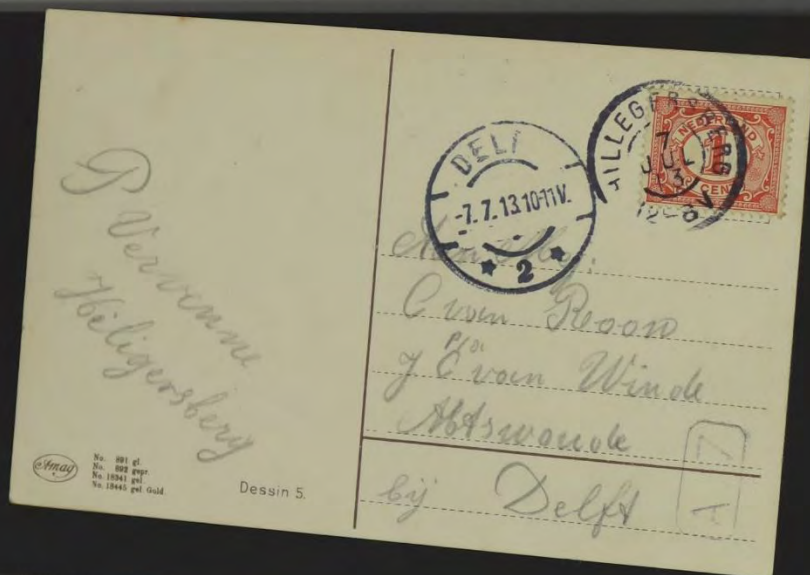 P Vervenne
Heligersberg
Amag
No. 891 gl.
No. 892 gepr.
No. 18341 gel.
No. 18445 gel. Gold.
Dessin 5.
DELF
-7.7.13.10-11V.
* 2 *
HILLEGERSBERG
7
JUL
13
12-8V
NEDERLAND
1
CENT
C van Roon
p/a
J C van Winde
Abtswoude
bij Delft
A 7